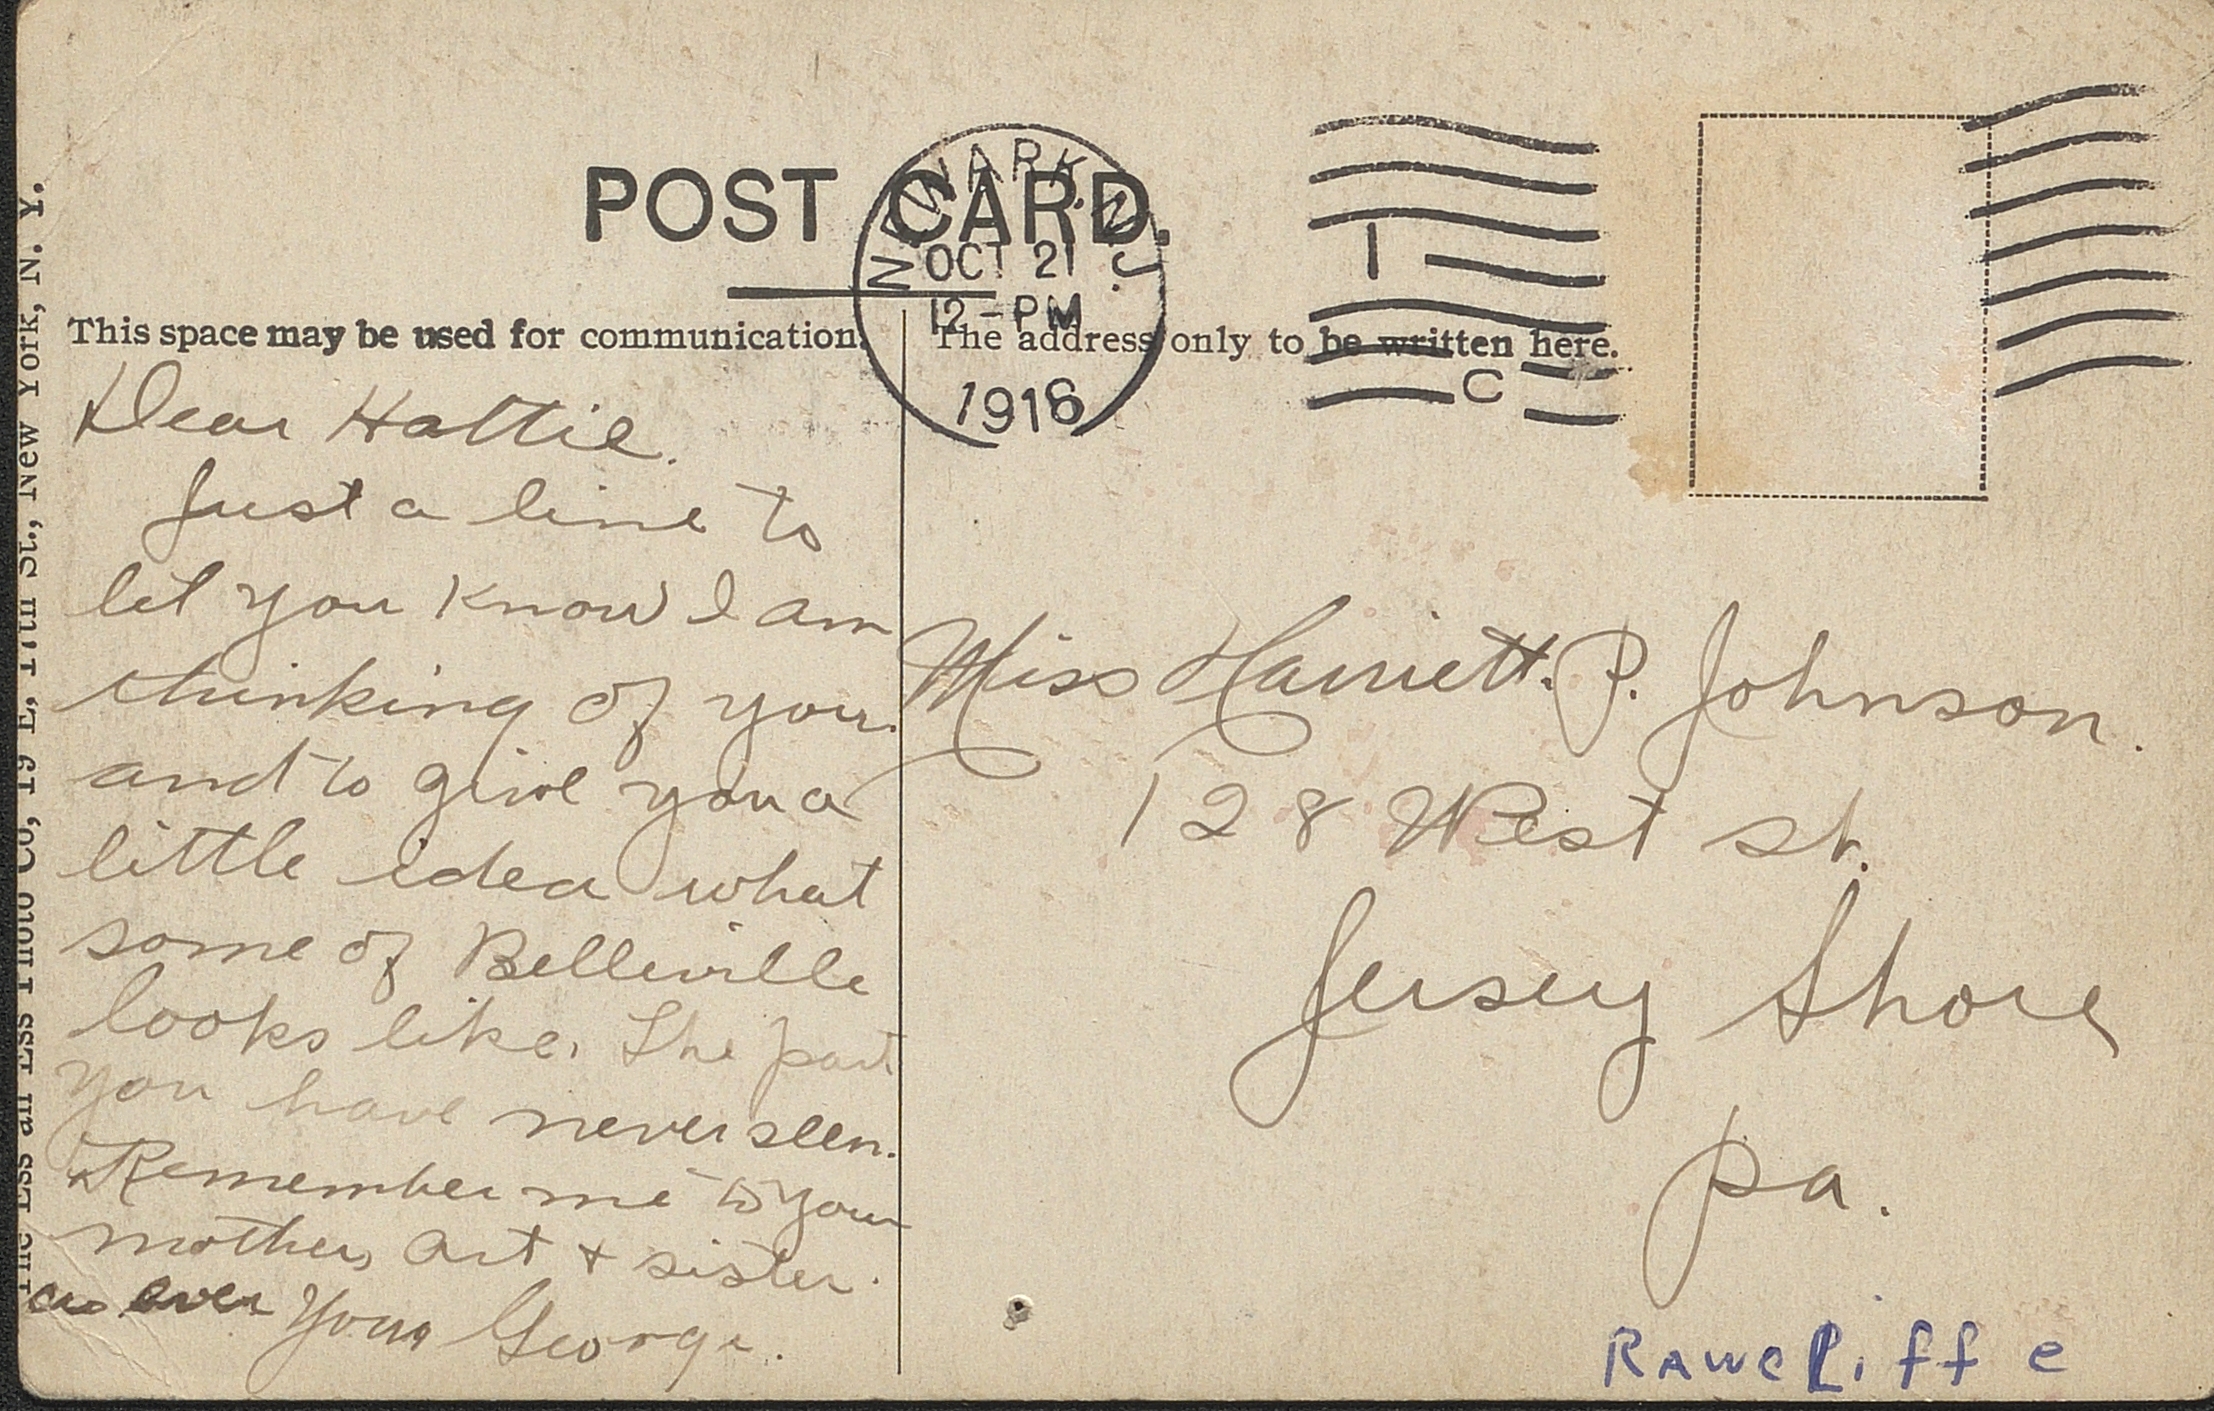 POST CARD.
NEWARK, N.J.
OCT 21
12-PM
1916
1
C
This space may be used for communication.
The address only to be written here.
Dear Hattie.
Just a line to
let you know I am
thinking of you.
and to give you a
little idea what
some of Belleville
looks like. The part
you have never seen.
Remember me to your
mother, Art + sister.
as ever Your George.
Miss Harriett. P. Johnson.
128 West st.
Jersey Shore
Pa.
RAWCLiffe
The Ess an Ess Photo Co, 19 E, 17th St., New York, N. Y.